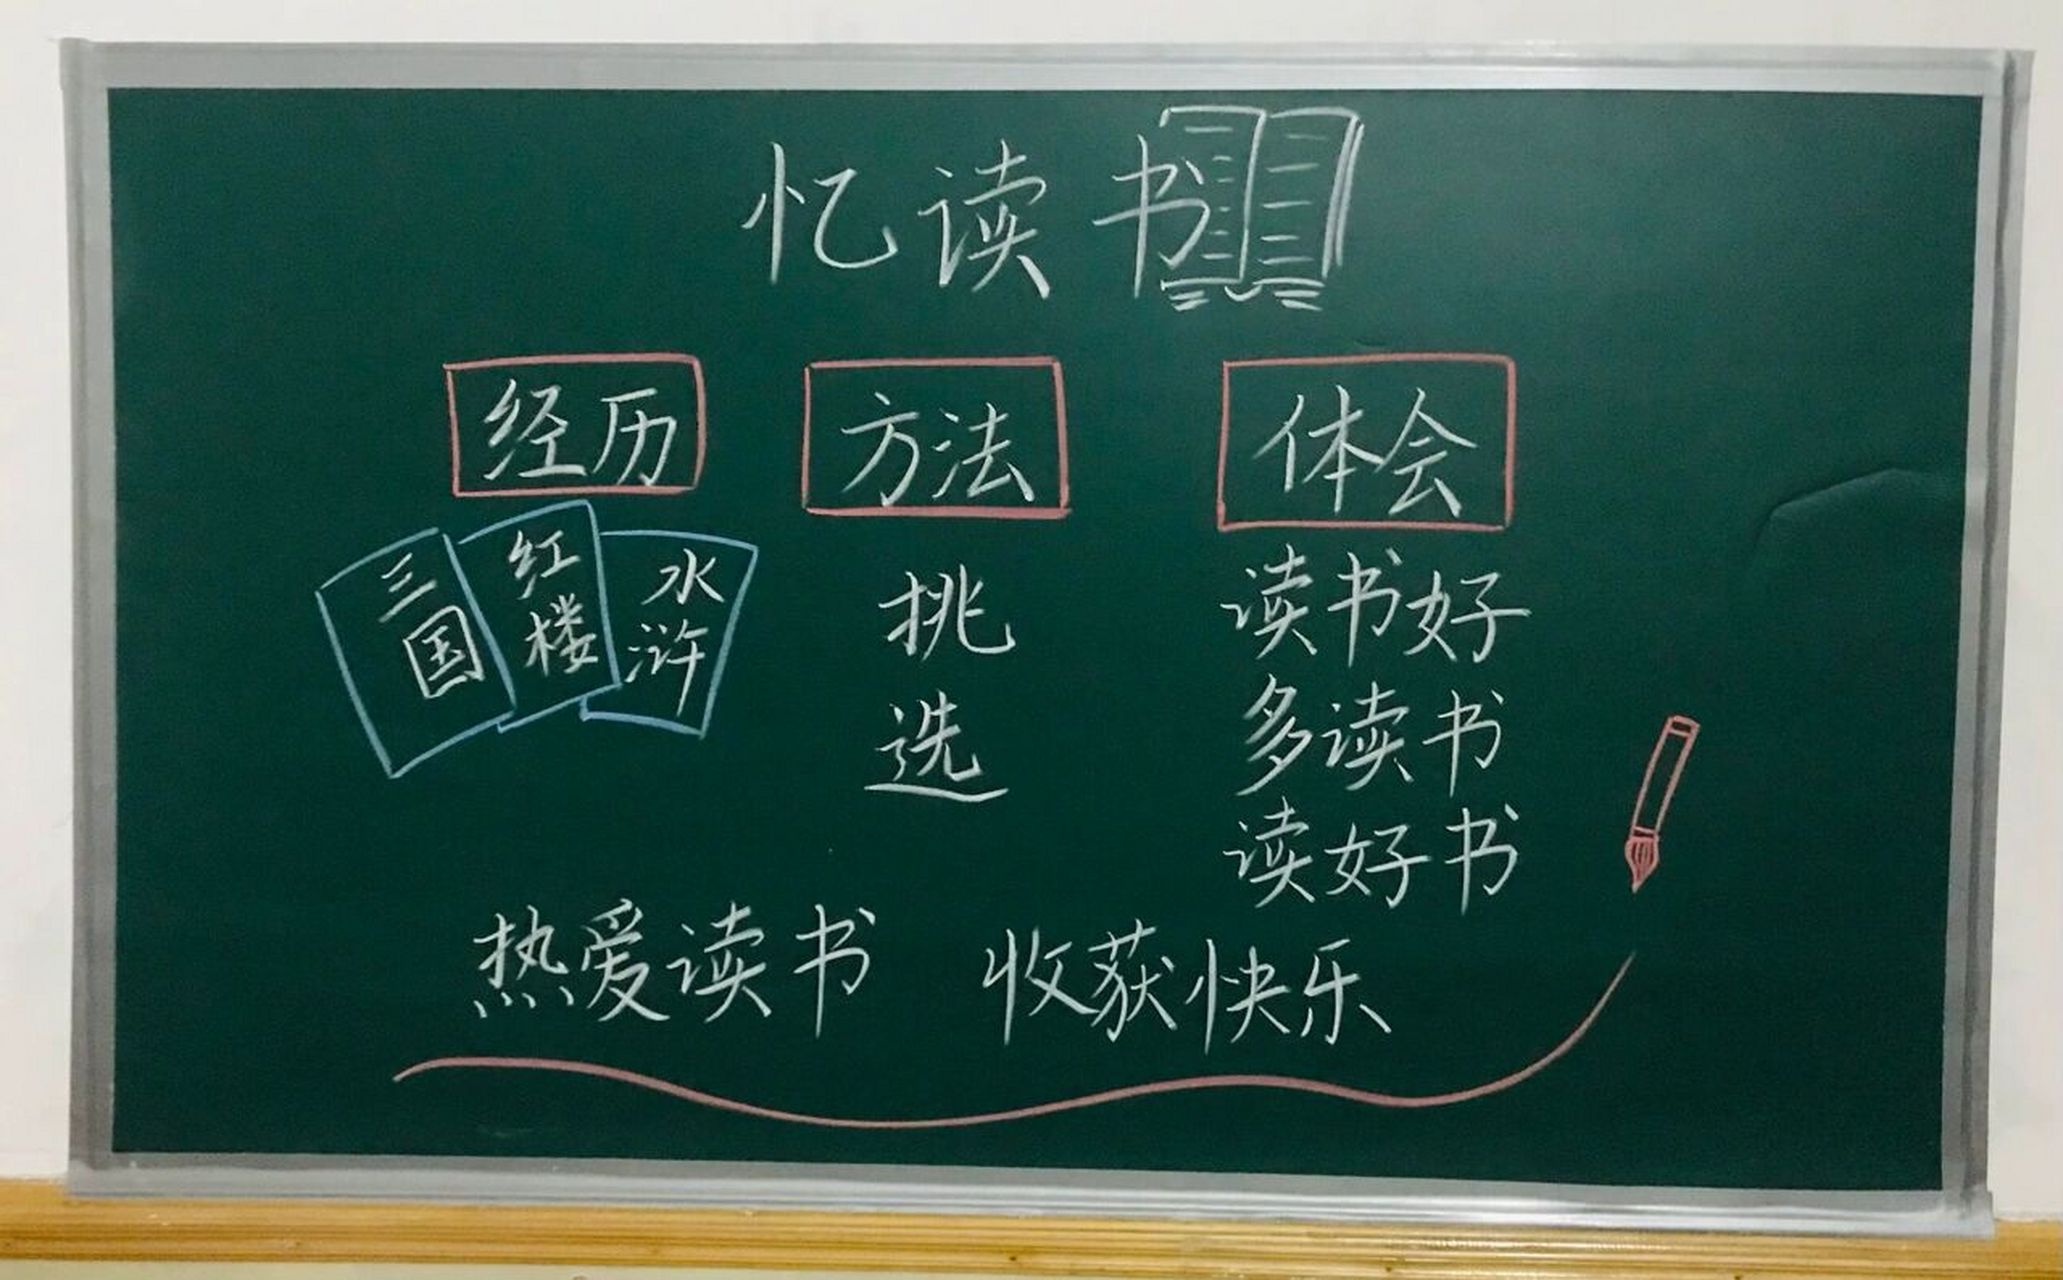 忆读书
经历
方法
体会
三国
红楼
水浒
挑选
读书好
多读书
读好书
热爱读书 收获快乐